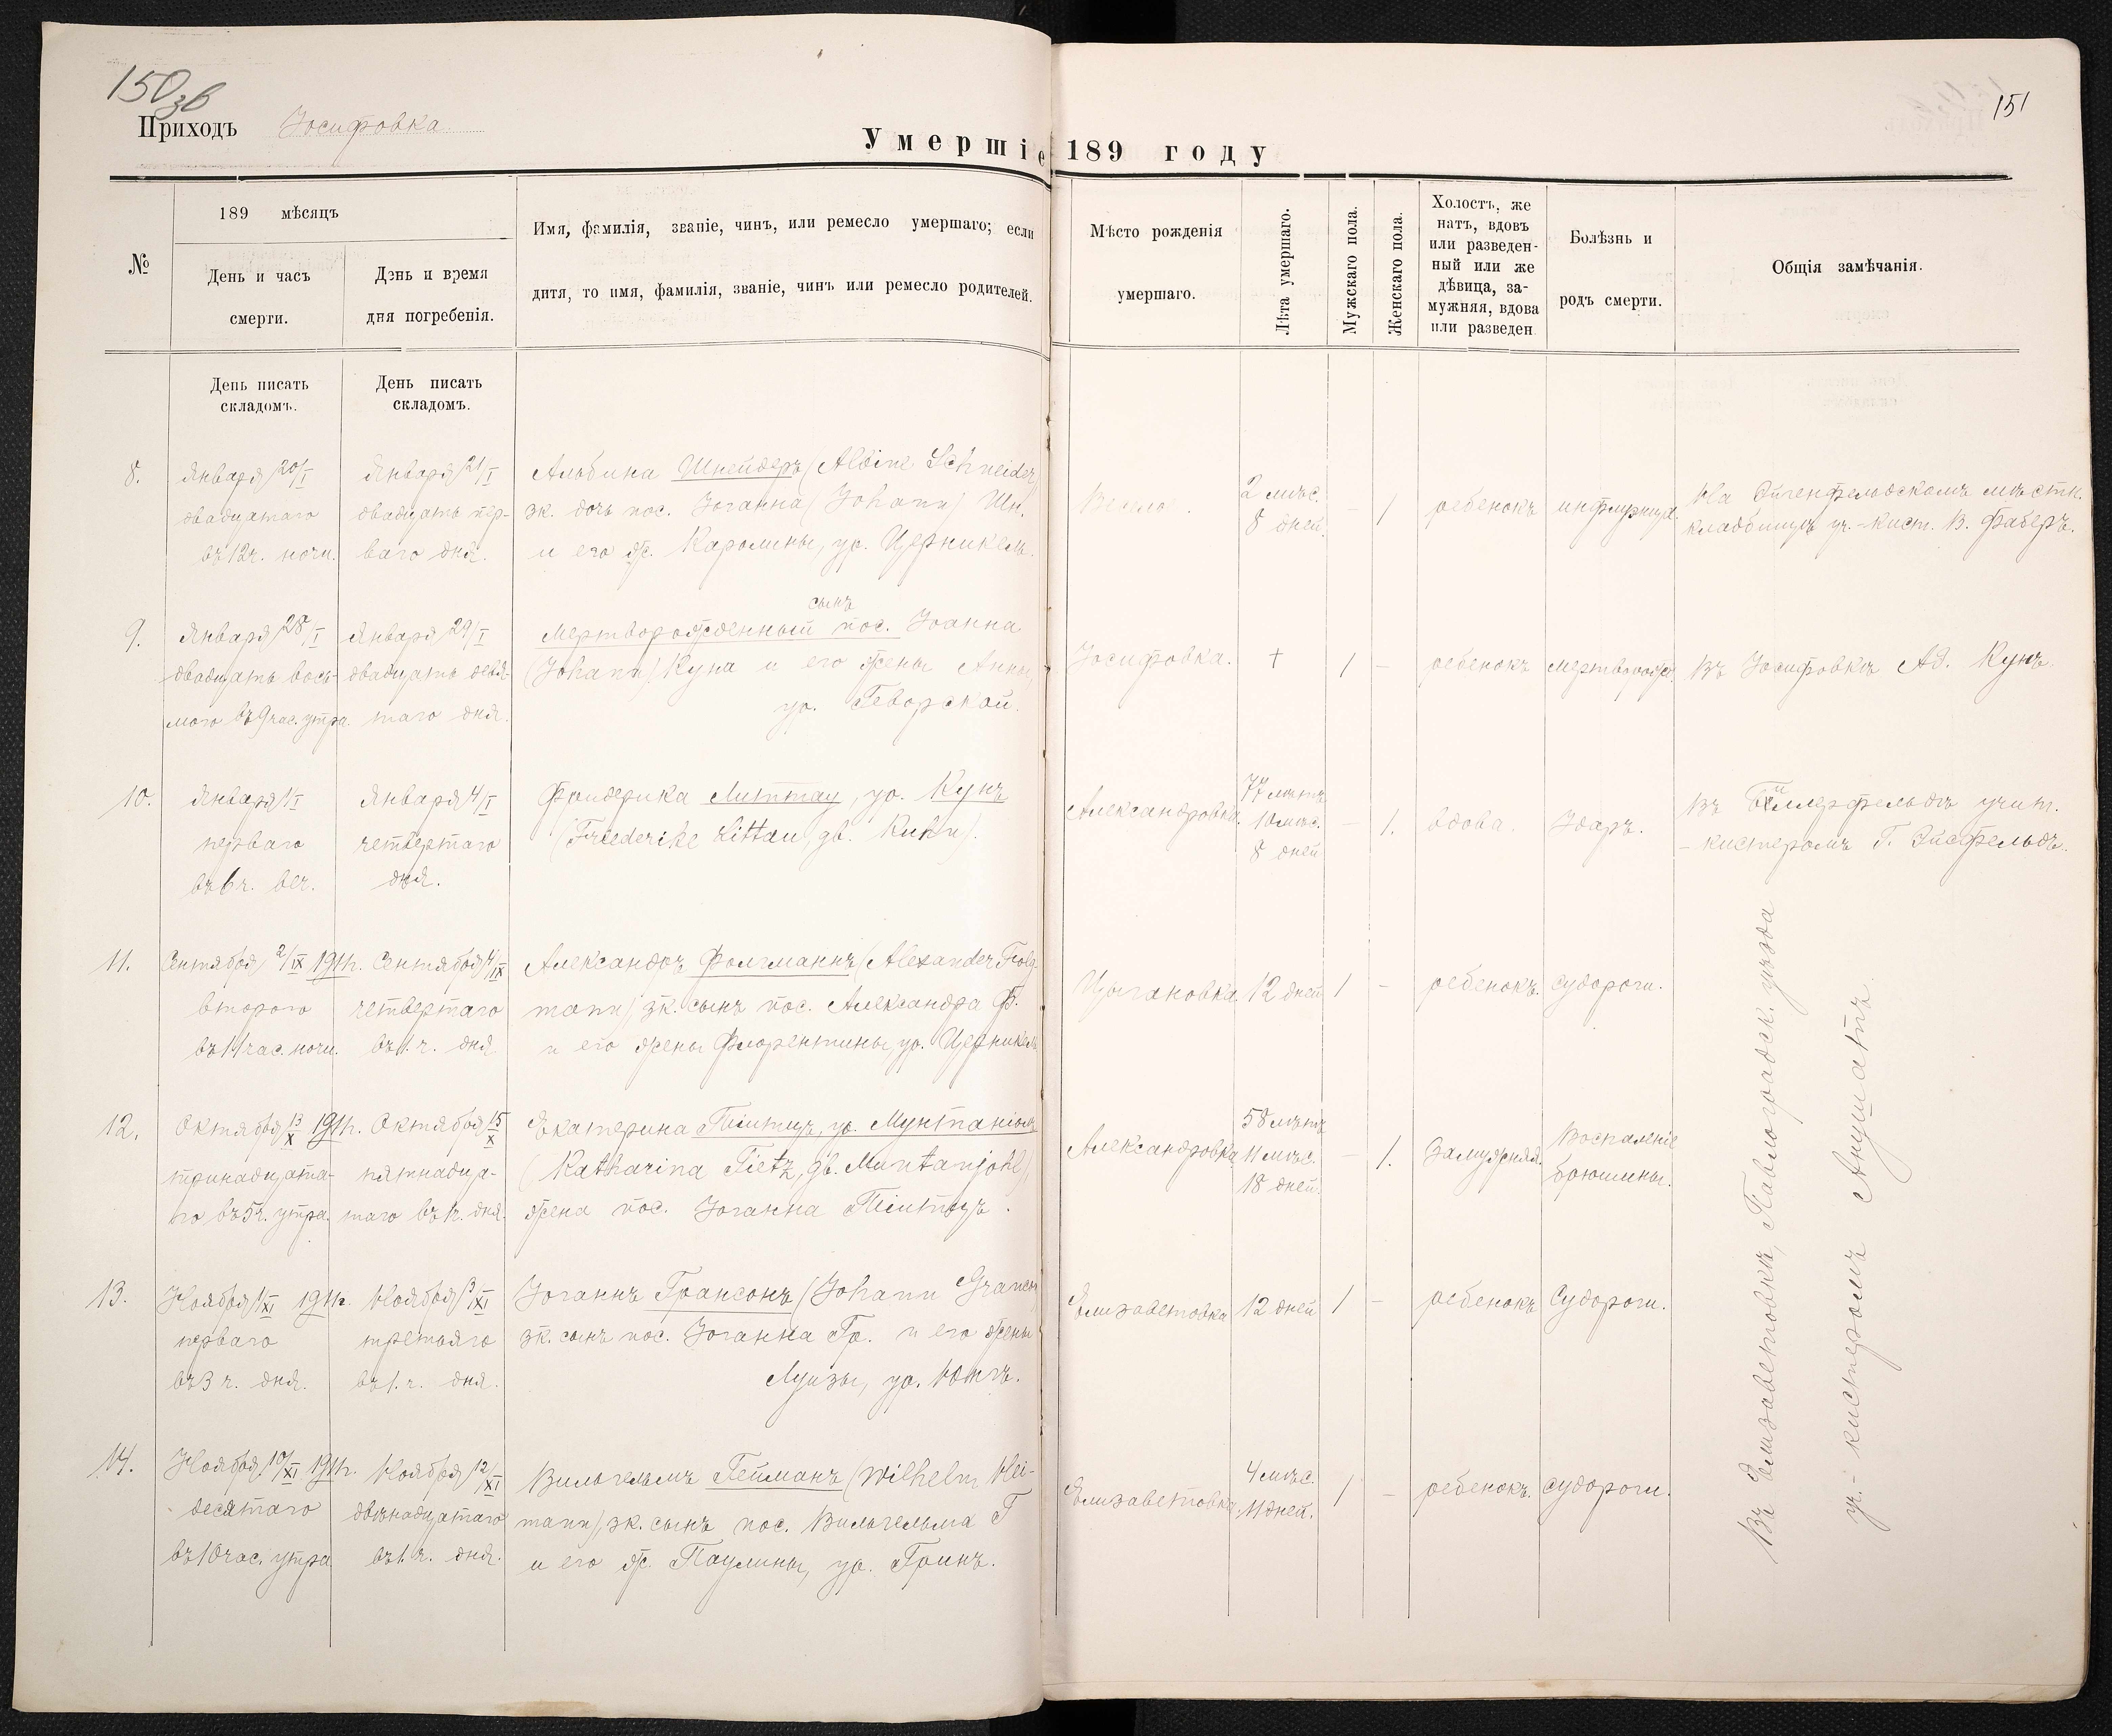 150 зв
Приходъ Іосифовка
151
Умершіе 189 году
№
189 мѣсяцъ
День и часъ
смерти.
День и время
дня погребенія.
Имя, фамилія, званіе, чинъ, или ремесло умершаго; если
дитя, то имя, фамилія, званіе, чинъ или ремесло родителей.
Мѣсто рожденія
умершаго.
Лѣта умершаго.
Мужскаго пола.
Женскаго пола.
Холостъ, же
натъ, вдовъ
или разведен-
ный или же
дѣвица, за-
мужняя, вдова
или разведен
Болѣзнь и
родъ смерти.
Общія замѣчанія.
День писать
складомъ.
День писать
складомъ.
8.
Января 20/I
двадцатаго
въ 12 ч. ночи.
Января 21/I
двадцать пер-
ваго дня.
Альбина Шнейдеръ (Albine Schneider)
зк. дочь пос. Іоганна (Johann) Шн.
и его ж. Каролины, ур. Церникель.
2 мѣс.
8 дней.
-
1
ребенокъ
На Эйгенфельдскомъ мѣстн.
кладбищѣ уч.-кист. В. Фаберъ.
9.
Января 28/I
двадцать вось-
мого въ 9 час. утра
Января 29/I
двадцать девя-
таго дня.
сынъ
Мертворожденный пос. Іоанна
(Johann) Куна и его жены Анны,
ур. Геворской.
Іосифовка.
+
1
-
ребенокъ
мертворожд.
Въ Іосифовкѣ Ад. Кунъ.
10.
Января 1/I
перваго
въ 6 ч. веч.
Января 4/I
четвертаго
дня.
Фридерика Литтау, ур. Кунъ
(Friederike Littau, gb. Kuhn).
Александровка.
77 лѣтъ
10 мѣс.
8 дней
-
1.
вдова.
Ударъ.
Въ учит.
-кистеромъ Г. Эйсфельдъ.
11.
Сентября 2/IX 1911 г.
второго
въ 11 час. ночи.
Сентября 4/IX
четвертаго
въ 1. ч. дня
Александръ Фолгманнъ (Alexander Folg-
mann), зк. сынъ пос. Александра Ф.
и его жены Флорентины, ур. Церникель
Цыгановка.
12 дней
1
-
ребенокъ.
судороги.
12.
Октября 13/X 1911 г.
тринадцата-
го въ 5 ч. утра.
Октября 15/X
пятнадца-
таго въ 1 ч. дня.
Екатерина Тіитцъ, ур. Мунтаніоль
(Katharina Tietz, gb. Muntanjohl),
жена пос. Іоганна Тіитцъ.
Александровка
58 лѣтъ
11 мѣс.
18 дней.
-
1.
Замужняя.
Воспаленіе
брюшины.
13.
Ноября 1/XI 1911 г.
перваго
въ 3 ч. дня.
Ноября 3/XI
третьяго
въ 1. ч. дня.
Іоганнъ Грансонъ (Johann Granson)
зк. сынъ пос. Іоганна Гр. и его жены
Луизы, ур.
Елизаветовка
12 дней
1
-
ребенокъ
Судороги.
14.
Ноября 10/XI 1911 г.
десятаго
въ 10 час. утра
Ноября 12/XI
двѣнадцатаго
въ 1. ч. дня.
Вильгельмъ Гейманъ (Wilhelm Hei-
mann), зк. сынъ пос. Вильгельма Г
и его ж. Паулины, ур. Гринъ.
Елизаветовка
4 мѣс.
11 дней.
1
-
ребенокъ.
судороги.
Въ Елизаветовкѣ, Павлоградск. уѣзда
уч.-кистеромъ Анушатъ.